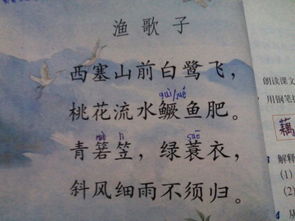 渔歌子
西塞山前白鹭飞，
guì/jué
桃花流水鳜鱼肥。
lì
suō
青箬笠，绿蓑衣，
斜风细雨不须归。
朗读课文
用钢笔
藕
解释
(1)
(2)